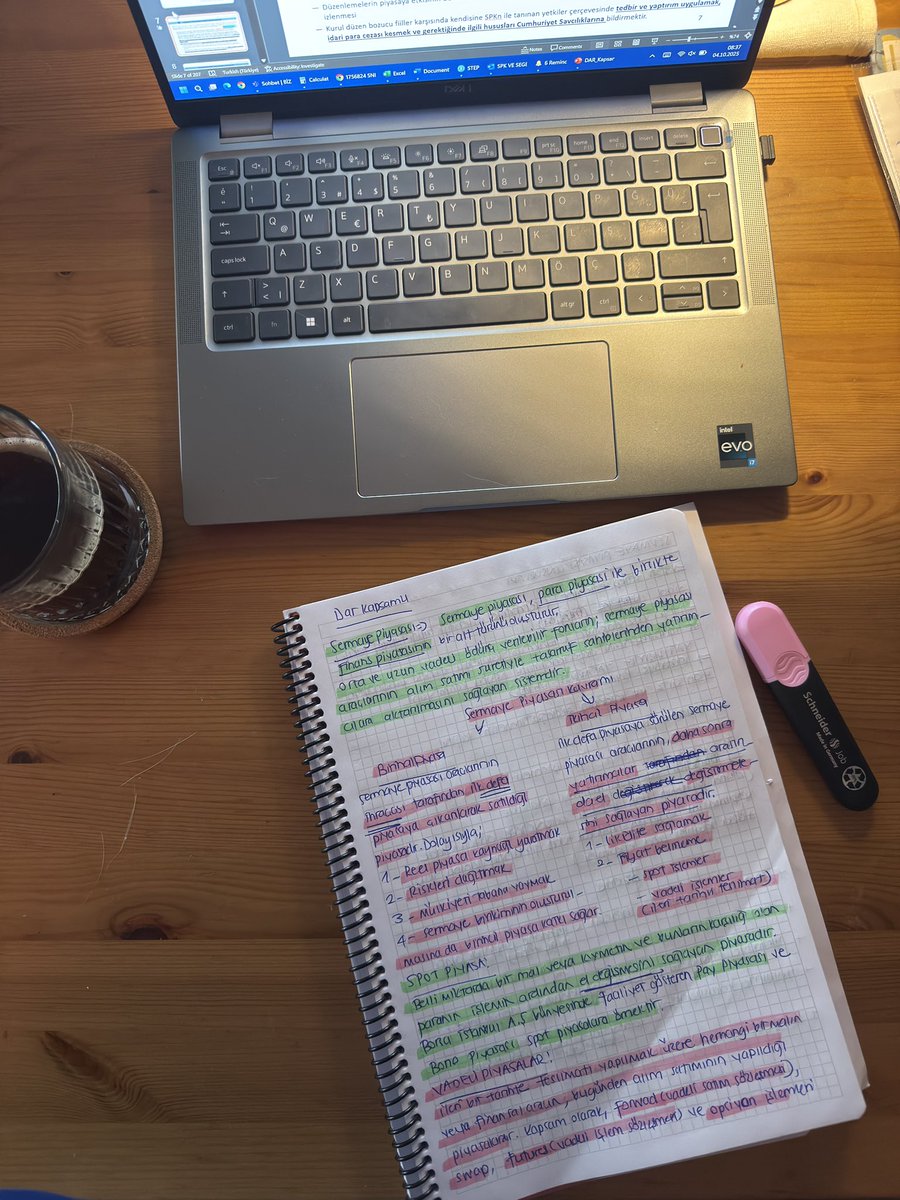 Düzenlemelerin piyasaya
izlenmesi
Kurul düzen bozucu fiiller karşısında kendisine SPKn ile tanınan yetkiler çerçevesinde tedbir ve yaptırım uygulamak,
idari para cezası kesmek ve gerektiğinde ilgili hususları Cumhuriyet Savcılıklarına bildirmektir.
7
7
8
Slide 7 of 207 Turkish (Türkiye) Accessibility: Investigate Notes Comments %74
Sohbet | BİZ Calculat 1756824 SNI Excel Document STEP SPK VE SEGİ 6 Reminc DAR_Kapsar
08:37
04.10.2025
DELL
Esc F1 F2 F3 F4 F5 F6 F7 F8 F9 prt sc F10 home F11 end F12 insert delete
é ! 1 ' 2 ^ 3 # + 4 $ % 5 & 6 / 7 { ( 8 [ ) 9 ] = 0 } ? * _ -
Q @ W E € R T ₺ Y U I O P Ğ Ü
caps lock A S D F G H J K L Ş İ
> < | Z X C V B N M Ö Ç
ctrl fn alt alt gr ctrl
intel
evo
i7
Schneider Job
Made in Germany
Dar Kapsamlı
Sermaye Piyasası => Sermaye piyasası, para piyasası ile birlikte
finans piyasasının bir alt türünü oluşturur.
orta ve uzun vadeli ödünç verilebilir fonların; sermaye piyasası
araçlarının alım satımı suretiyle tasarruf sahiplerinden yatırım-
cılara aktarılmasını sağlayan sistemdir.
Sermaye Piyasası Kavramı
Birincil Piyasa
sermaye piyasası araçlarının
ihraççısı tarafından ilk defa
piyasaya çıkarılarak satıldığı
piyasadır. Dolayısıyla;
1- Reel piyasa kaynağı yaratmak
2- Riskleri dağıtmak
3- Mülkiyeti tabana yaymak
4- sermaye birikiminin oluşturul-
masına da birincil piyasa katkı sağlar.
İkincil Piyasa
ilk defa piyasaya sürülen sermaye
piyasası araçlarının, daha sonra
yatırımcılar tarafından arasın-
da el değiştirmek değiştirmele-
rini sağlayan piyasadır.
1- Likidite sağlamak
2- Fiyat belirleme
- spot işlemler
- vadeli işlemler
(ileri tarihli teslimat)
SPOT PİYASA!
Belli miktarda bir mal veya kıymetin ve bunların karşılığı olan
paranın işlemin ardından el değişmesini sağlayan piyasadır.
Borsa İstanbul A.Ş bünyesinde faaliyet gösteren Pay Piyasası ve
Bono Piyasası spot piyasalara örnektir.
VADELİ PİYASALAR!
ileri bir tarihte teslimatı yapılmak üzere herhangi bir malın
veya finansal aracın, bugünden alım satımının yapıldığı
piyasalardır. Kapsam olarak, forward (vadeli satım sözleşmesi),
swap, futures (vadeli işlem sözleşmesi) ve opsiyon işlemleri